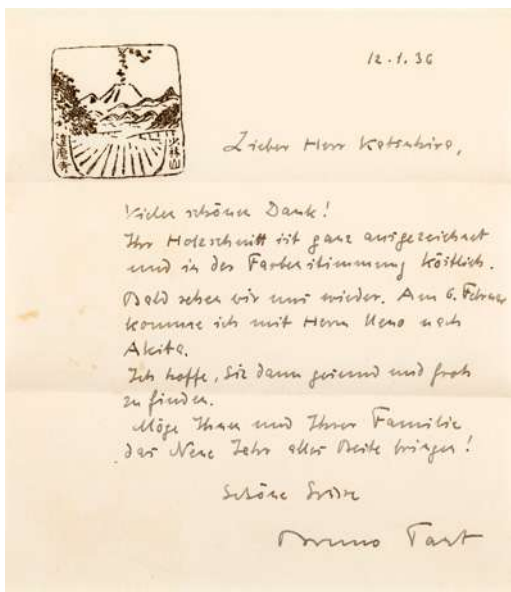 12.1.36
達磨寺
少林山
Lieber Herr Katsuhira,
Vielen schönen Dank!
Ihr Holzschnitt ist ganz ausgezeichnet
und in der Farbenstimmung köstlich.
Bald sehen wir uns wieder. Am 6. Februar
komme ich mit Herrn Ueno nach
Akita.
Ich hoffe, Sie dann gesund und froh
zu finden.
Möge Ihnen und Ihrer Familie
das Neue Jahr alles Beste bringen!
Schöne Grüsse
Bruno Taut